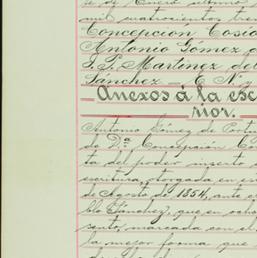 se de Enero último
mil cuatrocientos tre
Concepción Cosío
Antonio Gómez d
J. P. Martinez del
Sánchez — E. N. y
Anexos á la esc
rior.
Antonio Gómez de Portu
de D.ª Concepción Co
ta del poder inserto
escritura, otorgada en es
de Agosto de 1854, ante e
blo Sánchez, que en ocho
sento, marcada con el
la mejor forma que